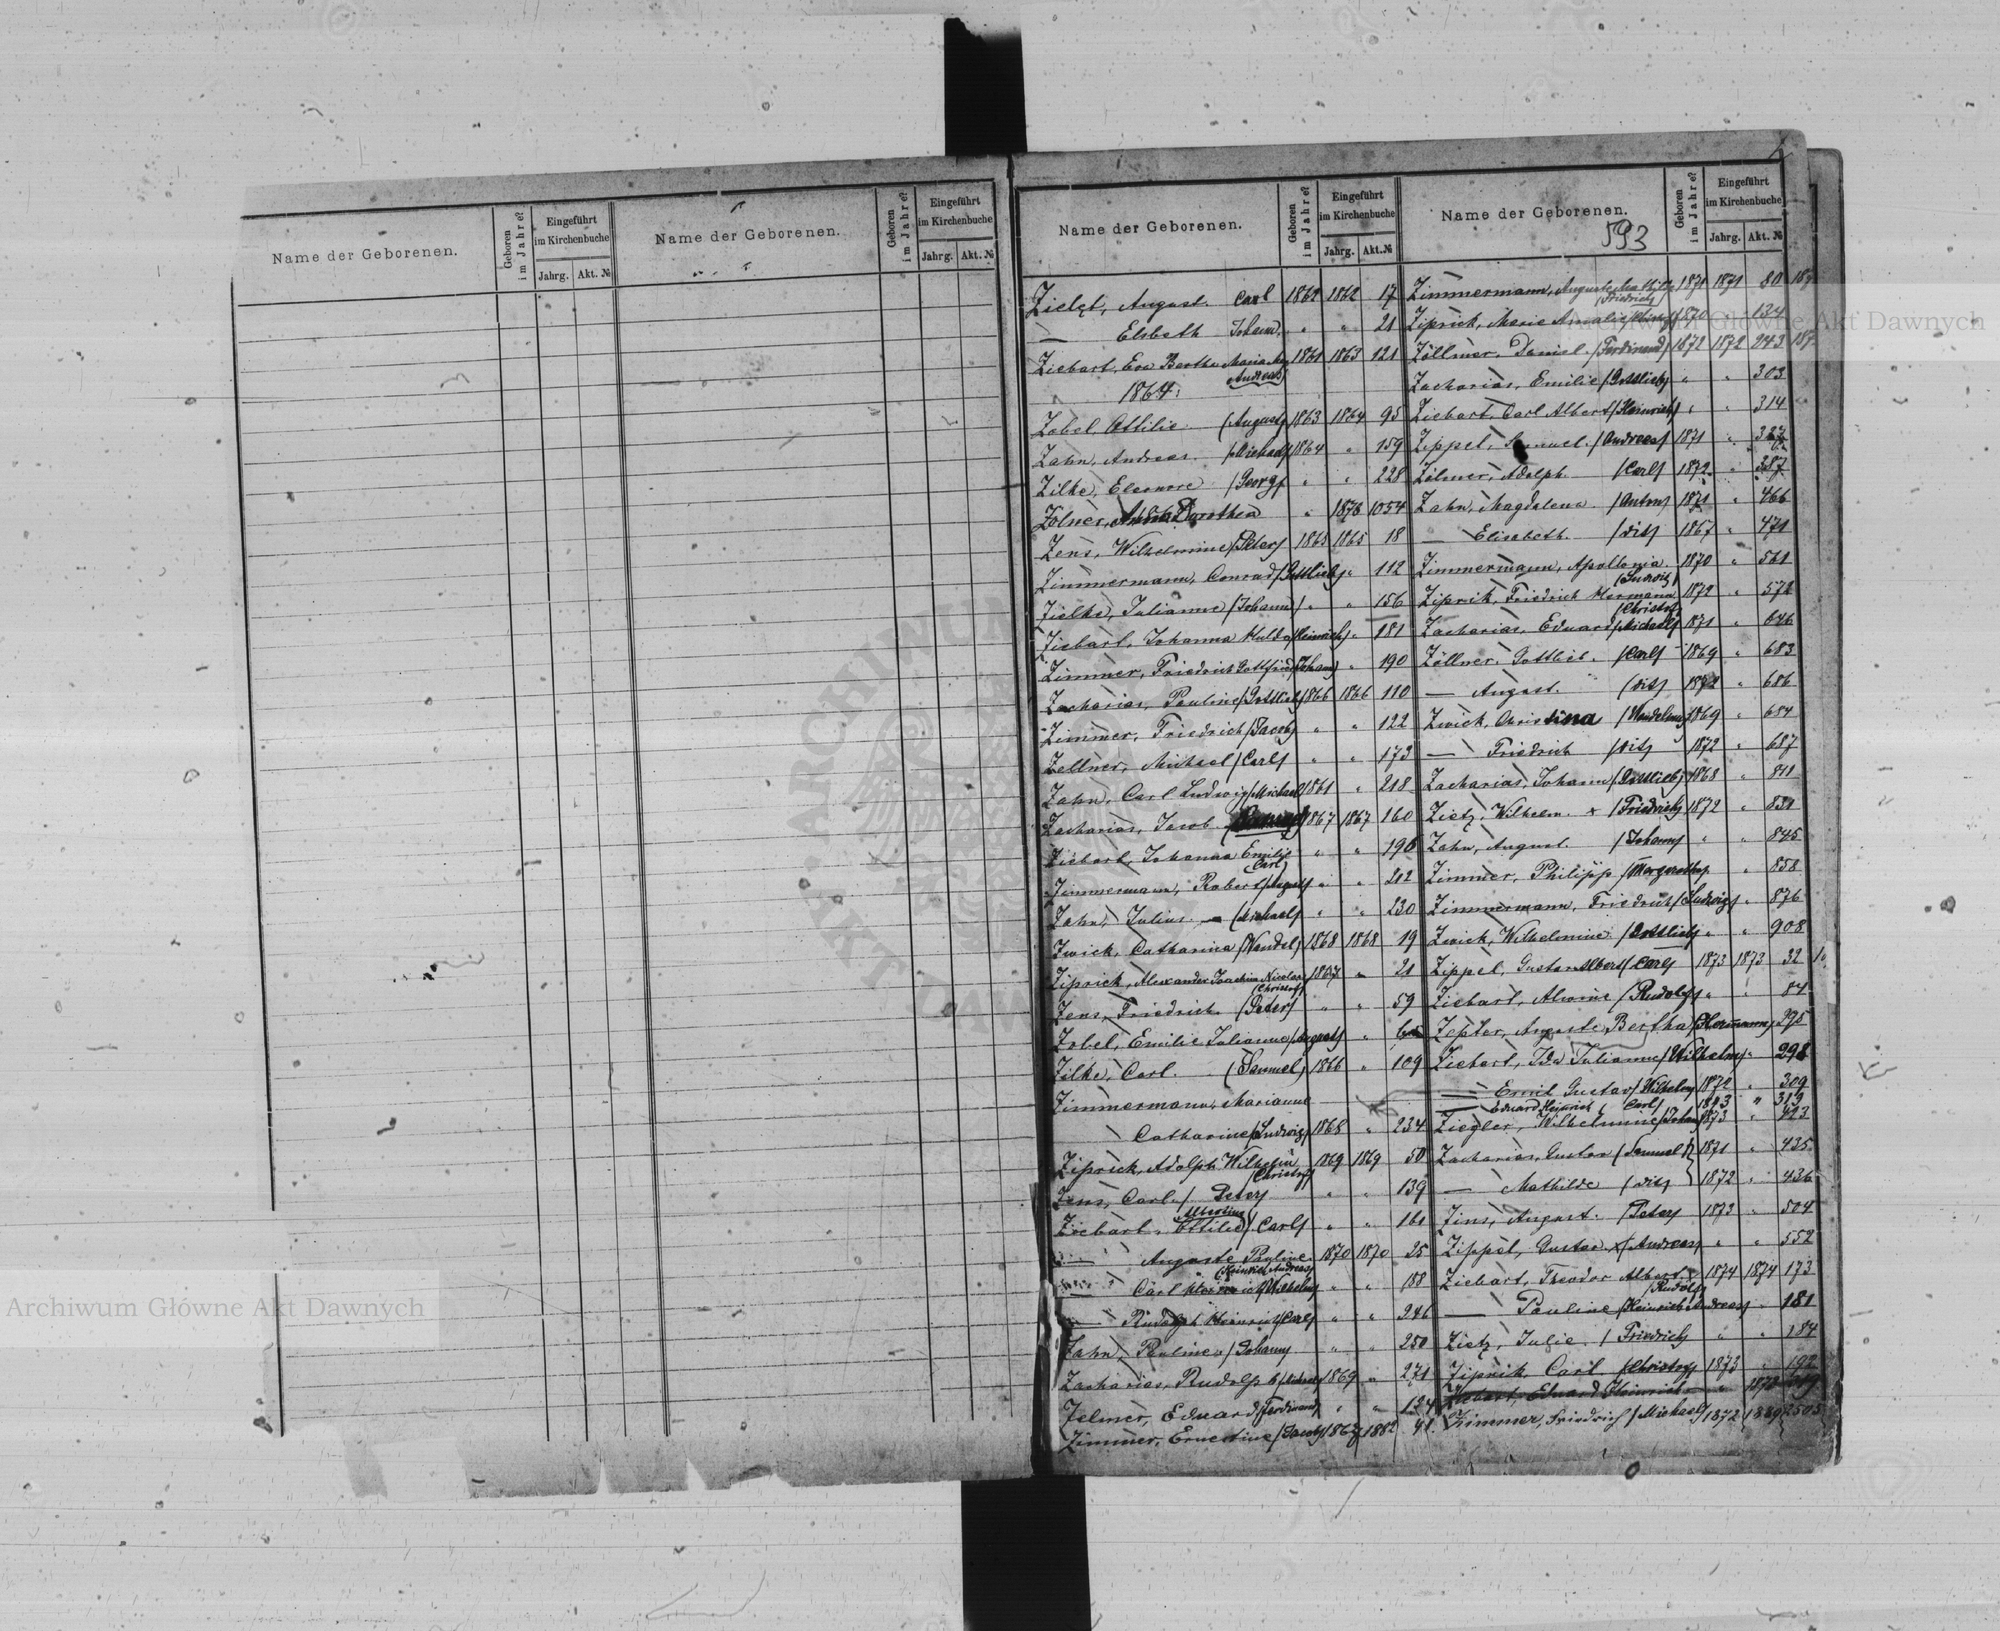 Name der Geborenen.
Geboren im Jahre?
Eingeführt im Kirchenbuche
Jahrg. Akt. №
Name der Geborenen.
Geboren im Jahre?
Eingeführt im Kirchenbuche
Jahrg. Akt. №
Name der Geborenen.
Geboren im Jahre?
Eingeführt im Kirchenbuche
Jahrg. Akt. №
Zielet, August. Carl 1862 1862 17
— Elsbeth Johann " " 21
Ziebart, Eva Bertha Maria Andreas 1861 1863 121
1864.
Zobel, Ottilie (August) 1863 1864 95
Zahn, Andreas (Michael) 1864 " 159
Zilke, Eleonore (Georg) " " 228
Zölner, Dorothea " 1878 1054
Zens, Wilhelmine (Peter) 1865 1865 18
Zimmermann, Conrad (Gottlieb) " " 112
Zielke, Julianne (Johann) " " 156
Ziebart, Johanna Hulda (Heinrich) " 181
Zimmer, Friedrich Gottfried (Johann) " 190
Zacharias, Pauline (Gottlieb) 1866 1866 110
Zimmer, Friedrich (Jacob) " " 122
Zellner, Michael (Carl) " " 173
Zahn, Carl Ludwig (Michael) 1861 " 218
Zacharias, Jacob 1867 1867 160
Ziebart, Johanna Emilie (Carl) " " 196
Zimmermann, Robert (August) " " 212
Zahn, Julius — (Michael) " " 230
Zwick, Catharina (Wendel) 1868 1868 19
Ziprick, Alexander Joachim Nicolas (Christof) 1867 " 21
Zens, Friedrich (Peter) " " 59
Zobel, Emilie Julianne (August) "
Zilke, Carl (Samuel) 1866 " 109
Zimmermann, Marianne
Catharine (Ludwig) 1868 " 234
Ziprick, Adolph Wilhelm (Christof) 1869 1869 50
Zens, Carl / Peter " " 139
Ziebart, Ottilie Albertine (Carl) " " 161
— Auguste Pauline (Heinrich Andreas) 1870 1870 25
Carl Heinrich (Wilhelm) " " 188
— Rudolph Heinrich (Carl) " " 246
Zahn, Pauline (Johann) " " 250
Zacharias, Rudolf 1869 " 271
Zelmer, Eduard (Ferdinand) " "
Zimmer, Ernestine (Jacob) 1862 1882 41
Name der Geborenen.
593
Geboren im Jahre?
Eingeführt im Kirchenbuche
Jahrg. Akt. №
Zimmermann, Auguste Mathilde (Friedrich) 1871 1871 80
Ziprick, Marie Amalie 1870 134
Zöllmer, Daniel (Ferdinand) 1872 1872 243
Zacharias, Emilie (Gottlieb) " " 303
Ziebart, Carl Albert (Heinrich) " " 314
Zippel, Samuel (Andreas) 1871 "
Zölmer, Adolph (Carl) 1872 " 387
Zahn, Magdalena (Anton) 1871 " 466
— Elisabeth (dit) 1867 " 471
Zimmermann, Apollonia (Ludwig) 1870 " 561
Ziprik, Friedrich Hermann (Christof) 1872 " 572
Zacharias, Eduard (Michael) 1871 " 646
Zöllner, Gottlieb (Carl) 1869 " 683
— August (dit) 1872 " 686
Zwick, Christina (Wendelin) 1869 " 684
— Friedrich (dit) 1872 " 687
Zacharias, Johann (Gottlieb) 1868 " 811
Zietz, Wilhelm x (Friedrich) 1872 " 831
Zahn, August (Johann) " " 845
Zimmer, Philipp (Margaretha) " 858
Zimmermann, Friedrich (Ludwig) " " 876
Zwick, Wilhelmine (Gottlieb) " " 908
Zippel, Gustav Albert (Carl) 1873 1873 32
Ziebart, Alwine (Rudolf) " " 84
Zepter, Auguste Bertha (Hermann) 275
Ziebart, Ida Julianne (Wilhelm) " 298
— Emil Gustav (Wilhelm) 1872 " 309
— Eduard Heinrich (Carl) 1873 " 319
Ziegler, Wilhelmine (Johan) 1873 " 423
Zacharias, Gustav (Samuel) 1871 " 435
— Mathilde (dit) 1872 " 436
Zins, August (Peter) 1873 " 504
Zippel, Gustav x (Andreas) " " 552
Ziebart, Theodor Albert (Rudolf) 1874 1874 173
— Pauline (Heinrich Andreas) " 181
Zietz, Julie (Friedrich) " " 184
Ziprik, Carl (Christof) 1873 " 192
Ziebart, Eduard Heinrich
Zimmer, Friedrich (Michael) 1872 1889 2505
Archiwum Główne Akt Dawnych
Archiwum Główne Akt Dawnych